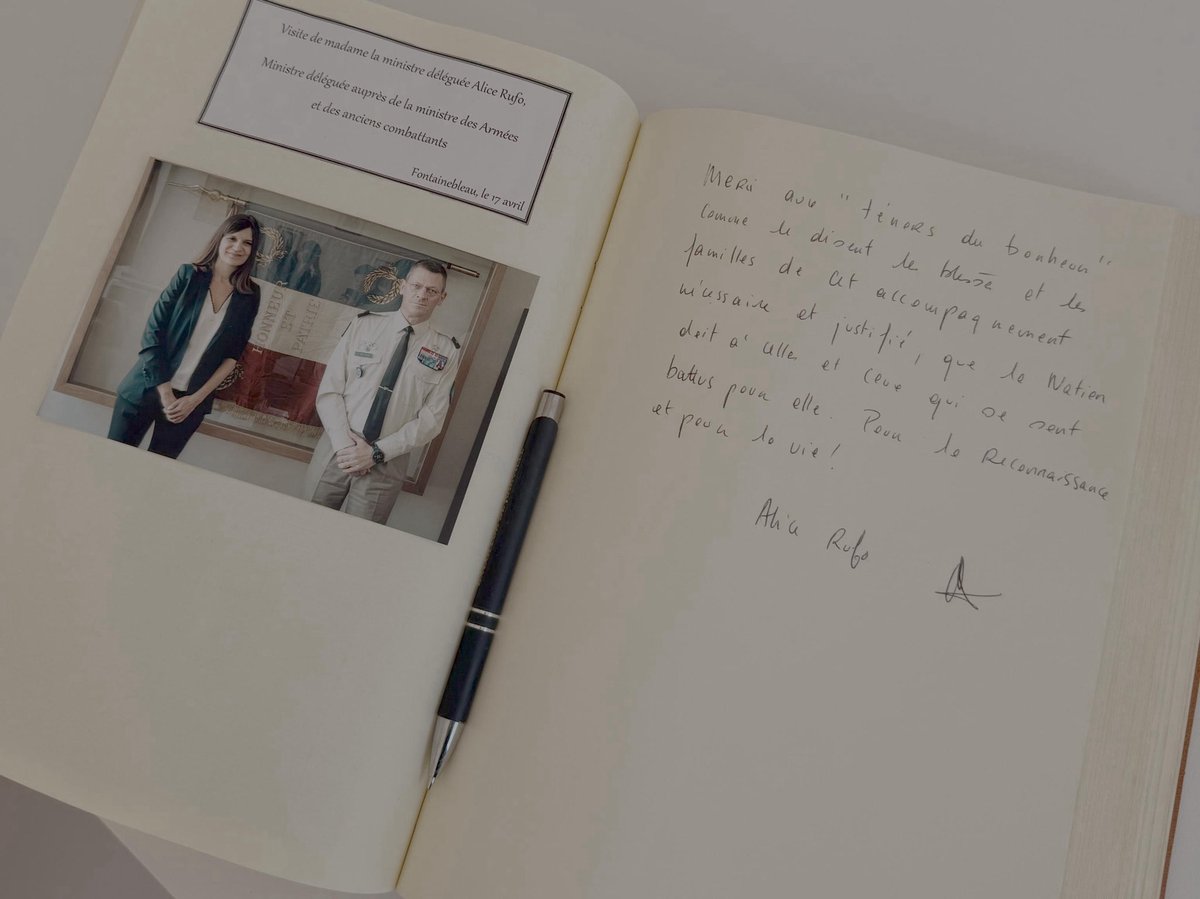 Visite de madame la ministre déléguée Alice Rufo,
Ministre déléguée auprès de la ministre des Armées
et des anciens combattants
Fontainebleau, le 17 avril
HONNEUR
ET
PATRIE
Merci aux "ténors du bonheur"
comme le disent le blessé et les
familles de cet accompagnement
nécessaire et justifié, que la Nation
doit à celles et ceux qui se sont
battus pour elle. Pour la Reconnaissance
et pour la vie!
Alice Rufo